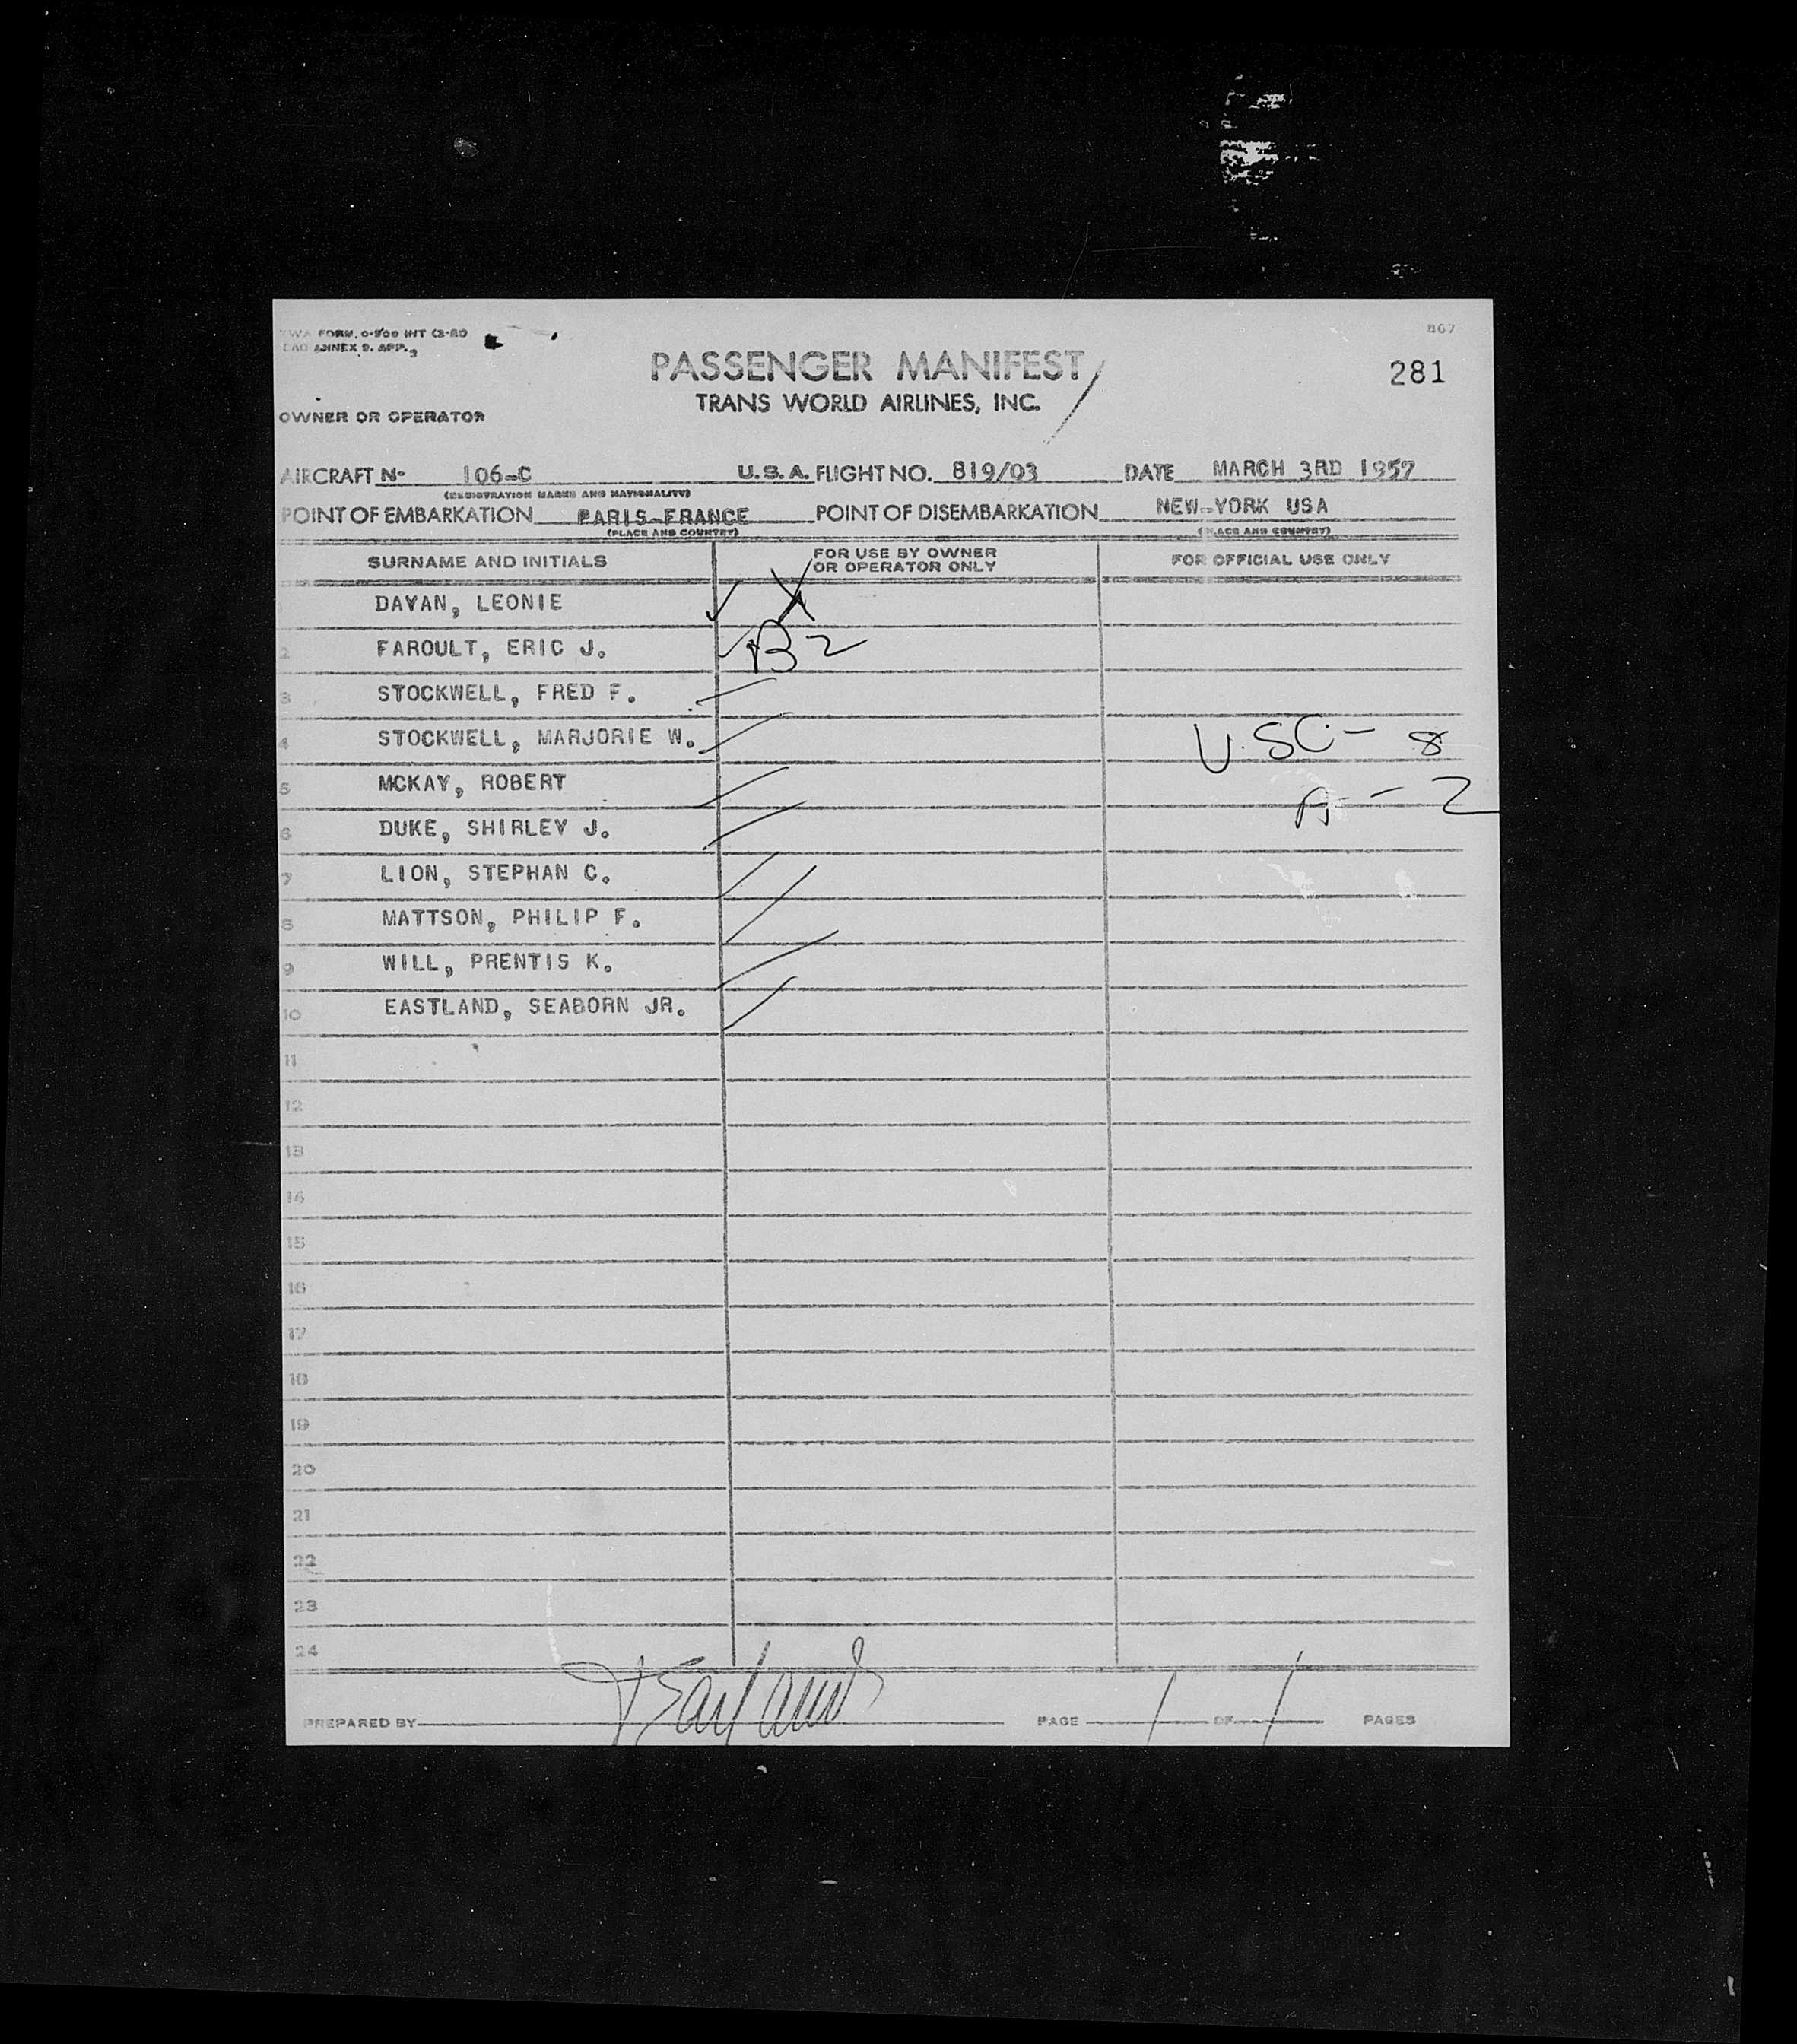 TWA FORM. O-900 INT
ICAO ANNEX 9. APP. 3
867
281
PASSENGER MANIFEST
TRANS WORLD AIRLINES, INC.
OWNER OR OPERATOR
AIRCRAFT N- 106-C U.S.A. FLIGHT NO. 819/03 DATE MARCH 3RD 1957
(REGISTRATION MARKS AND NATIONALITY)
POINT OF EMBARKATION PARIS-FRANCE POINT OF DISEMBARKATION NEW-YORK USA
(PLACE AND COUNTRY) (PLACE AND COUNTRY)
SURNAME AND INITIALS FOR USE BY OWNER OR OPERATOR ONLY FOR OFFICIAL USE ONLY
DAVAN, LEONIE X
2 FAROULT, ERIC J. B2
3 STOCKWELL, FRED F.
4 STOCKWELL, MARJORIE W. U.SC- 8
5 MCKAY, ROBERT A - 2
6 DUKE, SHIRLEY J.
7 LION, STEPHAN C.
8 MATTSON, PHILIP F.
9 WILL, PRENTIS K.
10 EASTLAND, SEABORN JR.
11
12
13
14
15
16
17
18
19
20
21
22
23
24
PREPARED BY PAGE 1 OF 1 PAGES